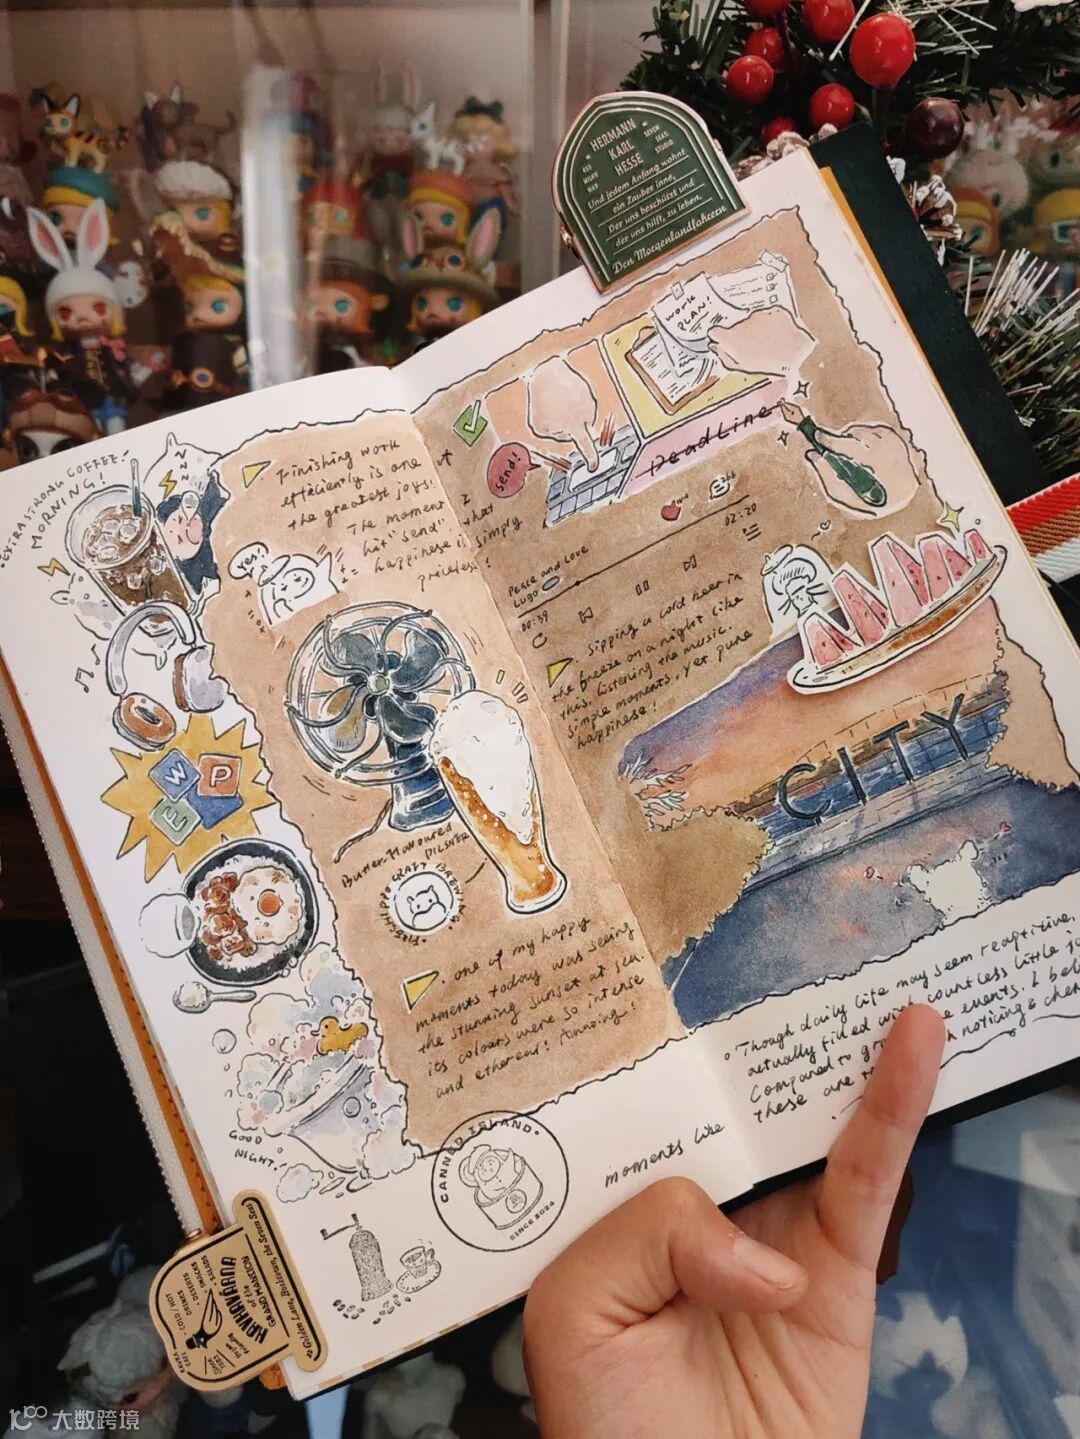 HERMANN
KARL
HESSE
SEVEN
SEAS
STUDIO
Und jedem Anfang wohnt
ein Zauber inne,
Der uns beschützt und
der uns hilft, zu leben.
Den Morgenlandfahrern
EXTRA STRONG COFFEE!
MORNING!
zzz
Finishing work
efficiently is one
the greatest joys!
The moment I
hit "send", that
happiness is simply
priceless!
Yes!!
W
P
E
Butter-Flavoured
PILSNER
HIPPO CRAFT BREWING
one of my happy
moments today was seeing
the stunning sunset at sea.
its colours were so intense
and ethereal! Amazing!
GOOD
NIGHT!
CANNED ISLAND
SINCE 2024
WORK
PLAN!
send!
DeadLine
266
02:20
Peace and Love
Lugo
00:39
Sipping a cold beer in
the breeze on a night like
this, listening the music.
Simple moments, yet pure
happiness!
CITY
Though daily life may seem reaptitive,
actually filled with countless little
events. I
Compared to noticing &
these are
moments like
KAVHAVÁRNA
of the
GRAND MANSION
COLD/HOT
DRINKS
DESSERTS
SNACKS
SALADS
Golden Lane, Bohdirun, the Seven Seas
大数跨境